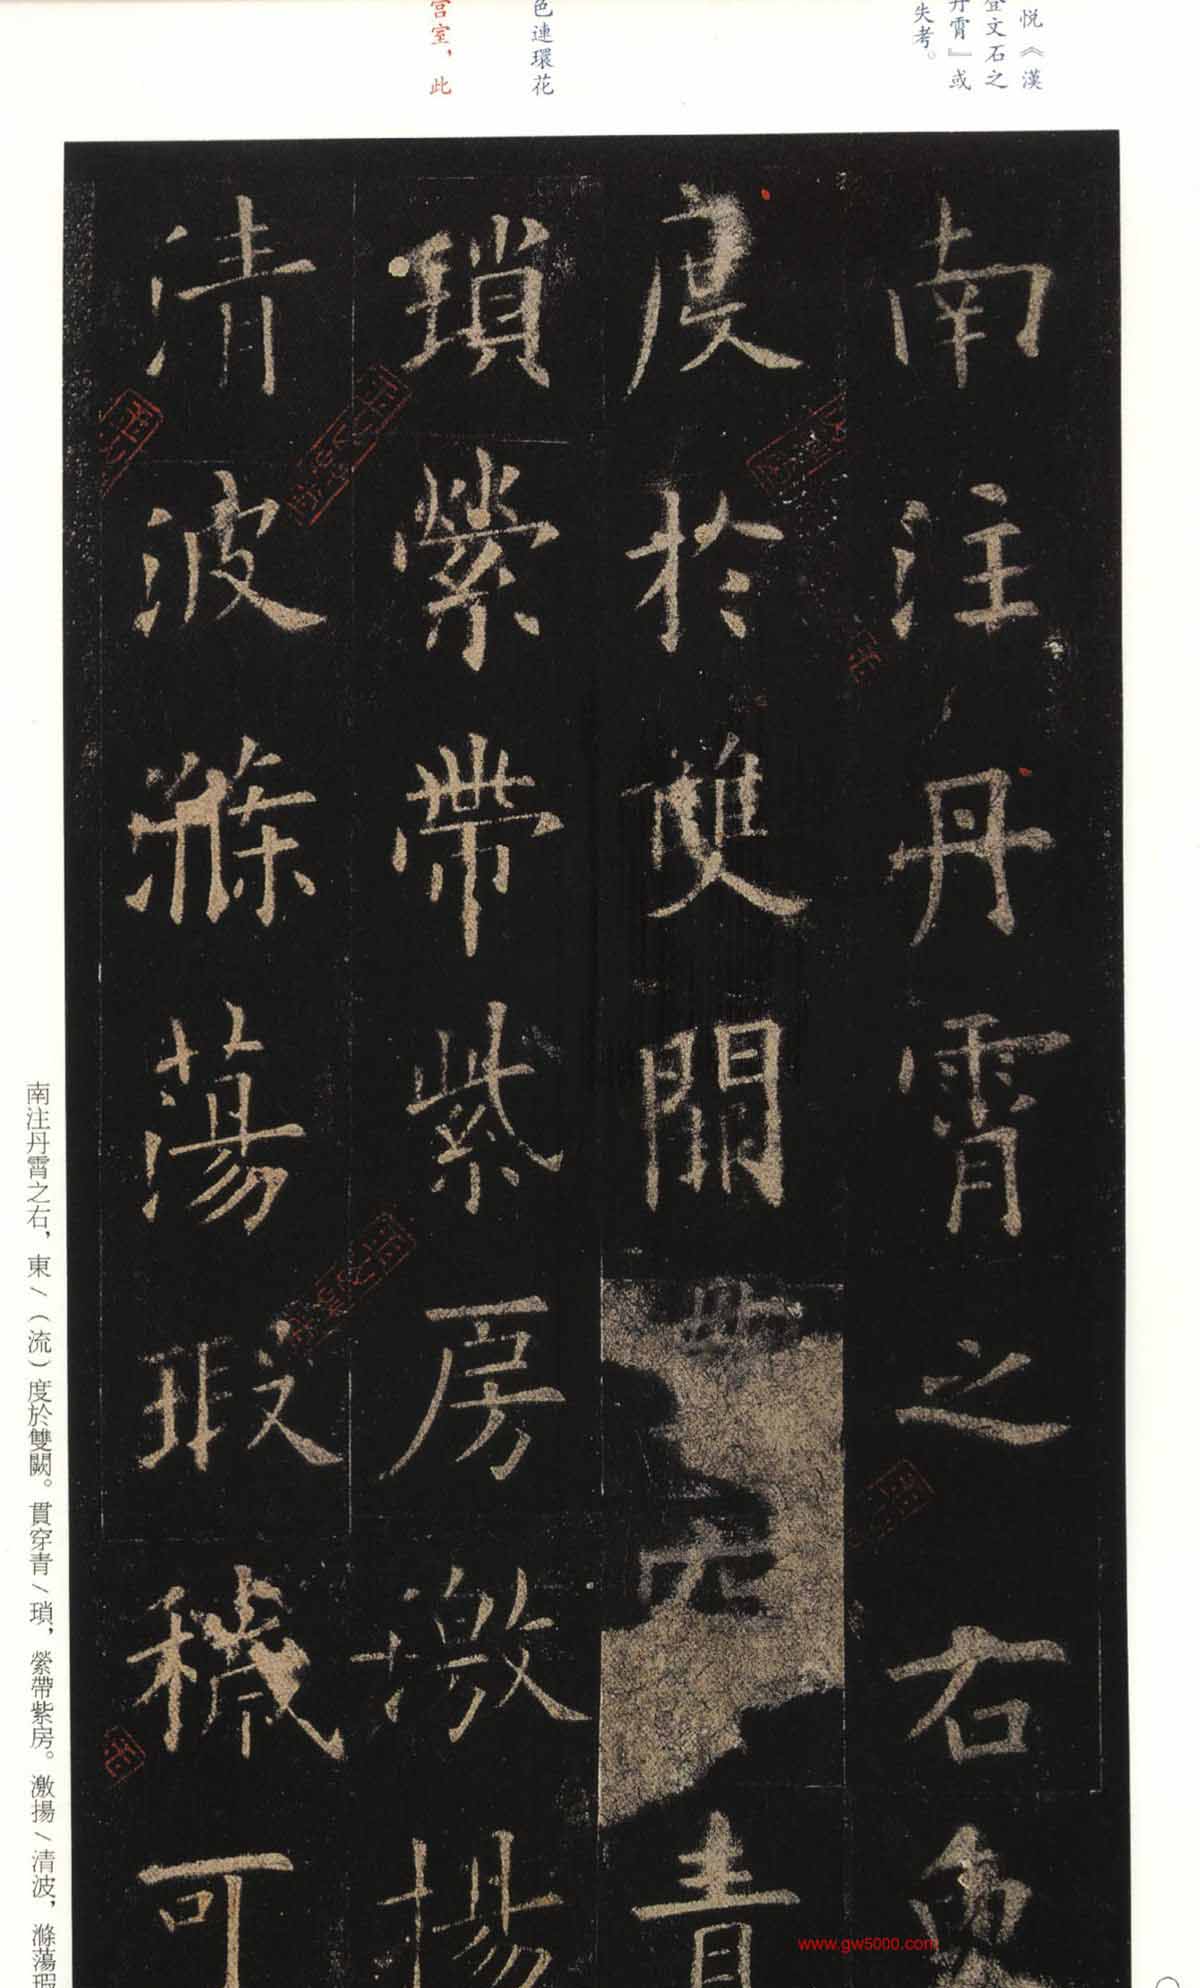 悅《漢
登文石之
丹霄』或
失考。
色連環花
宮室，此
南注丹霄之右東
度於雙闕貫穿青
瑣縈帶紫房激揚
清波滌蕩瑕穢可
南注丹霄之右，東／（流）度於雙闕。貫穿青／瑣，縈帶紫房。激揚／清波，滌蕩瑕
www.gw5000.com